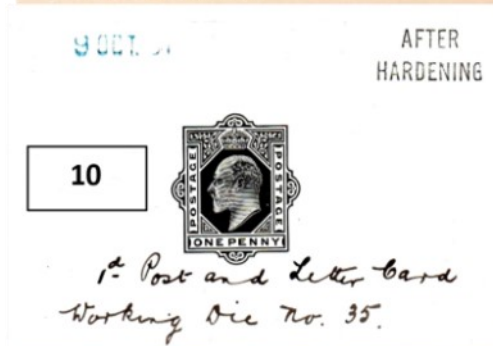 9 OCT.
AFTER
HARDENING
10
POSTAGE
POSTAGE
ONE PENNY
1d Post and Letter Card
Working Die No. 35.